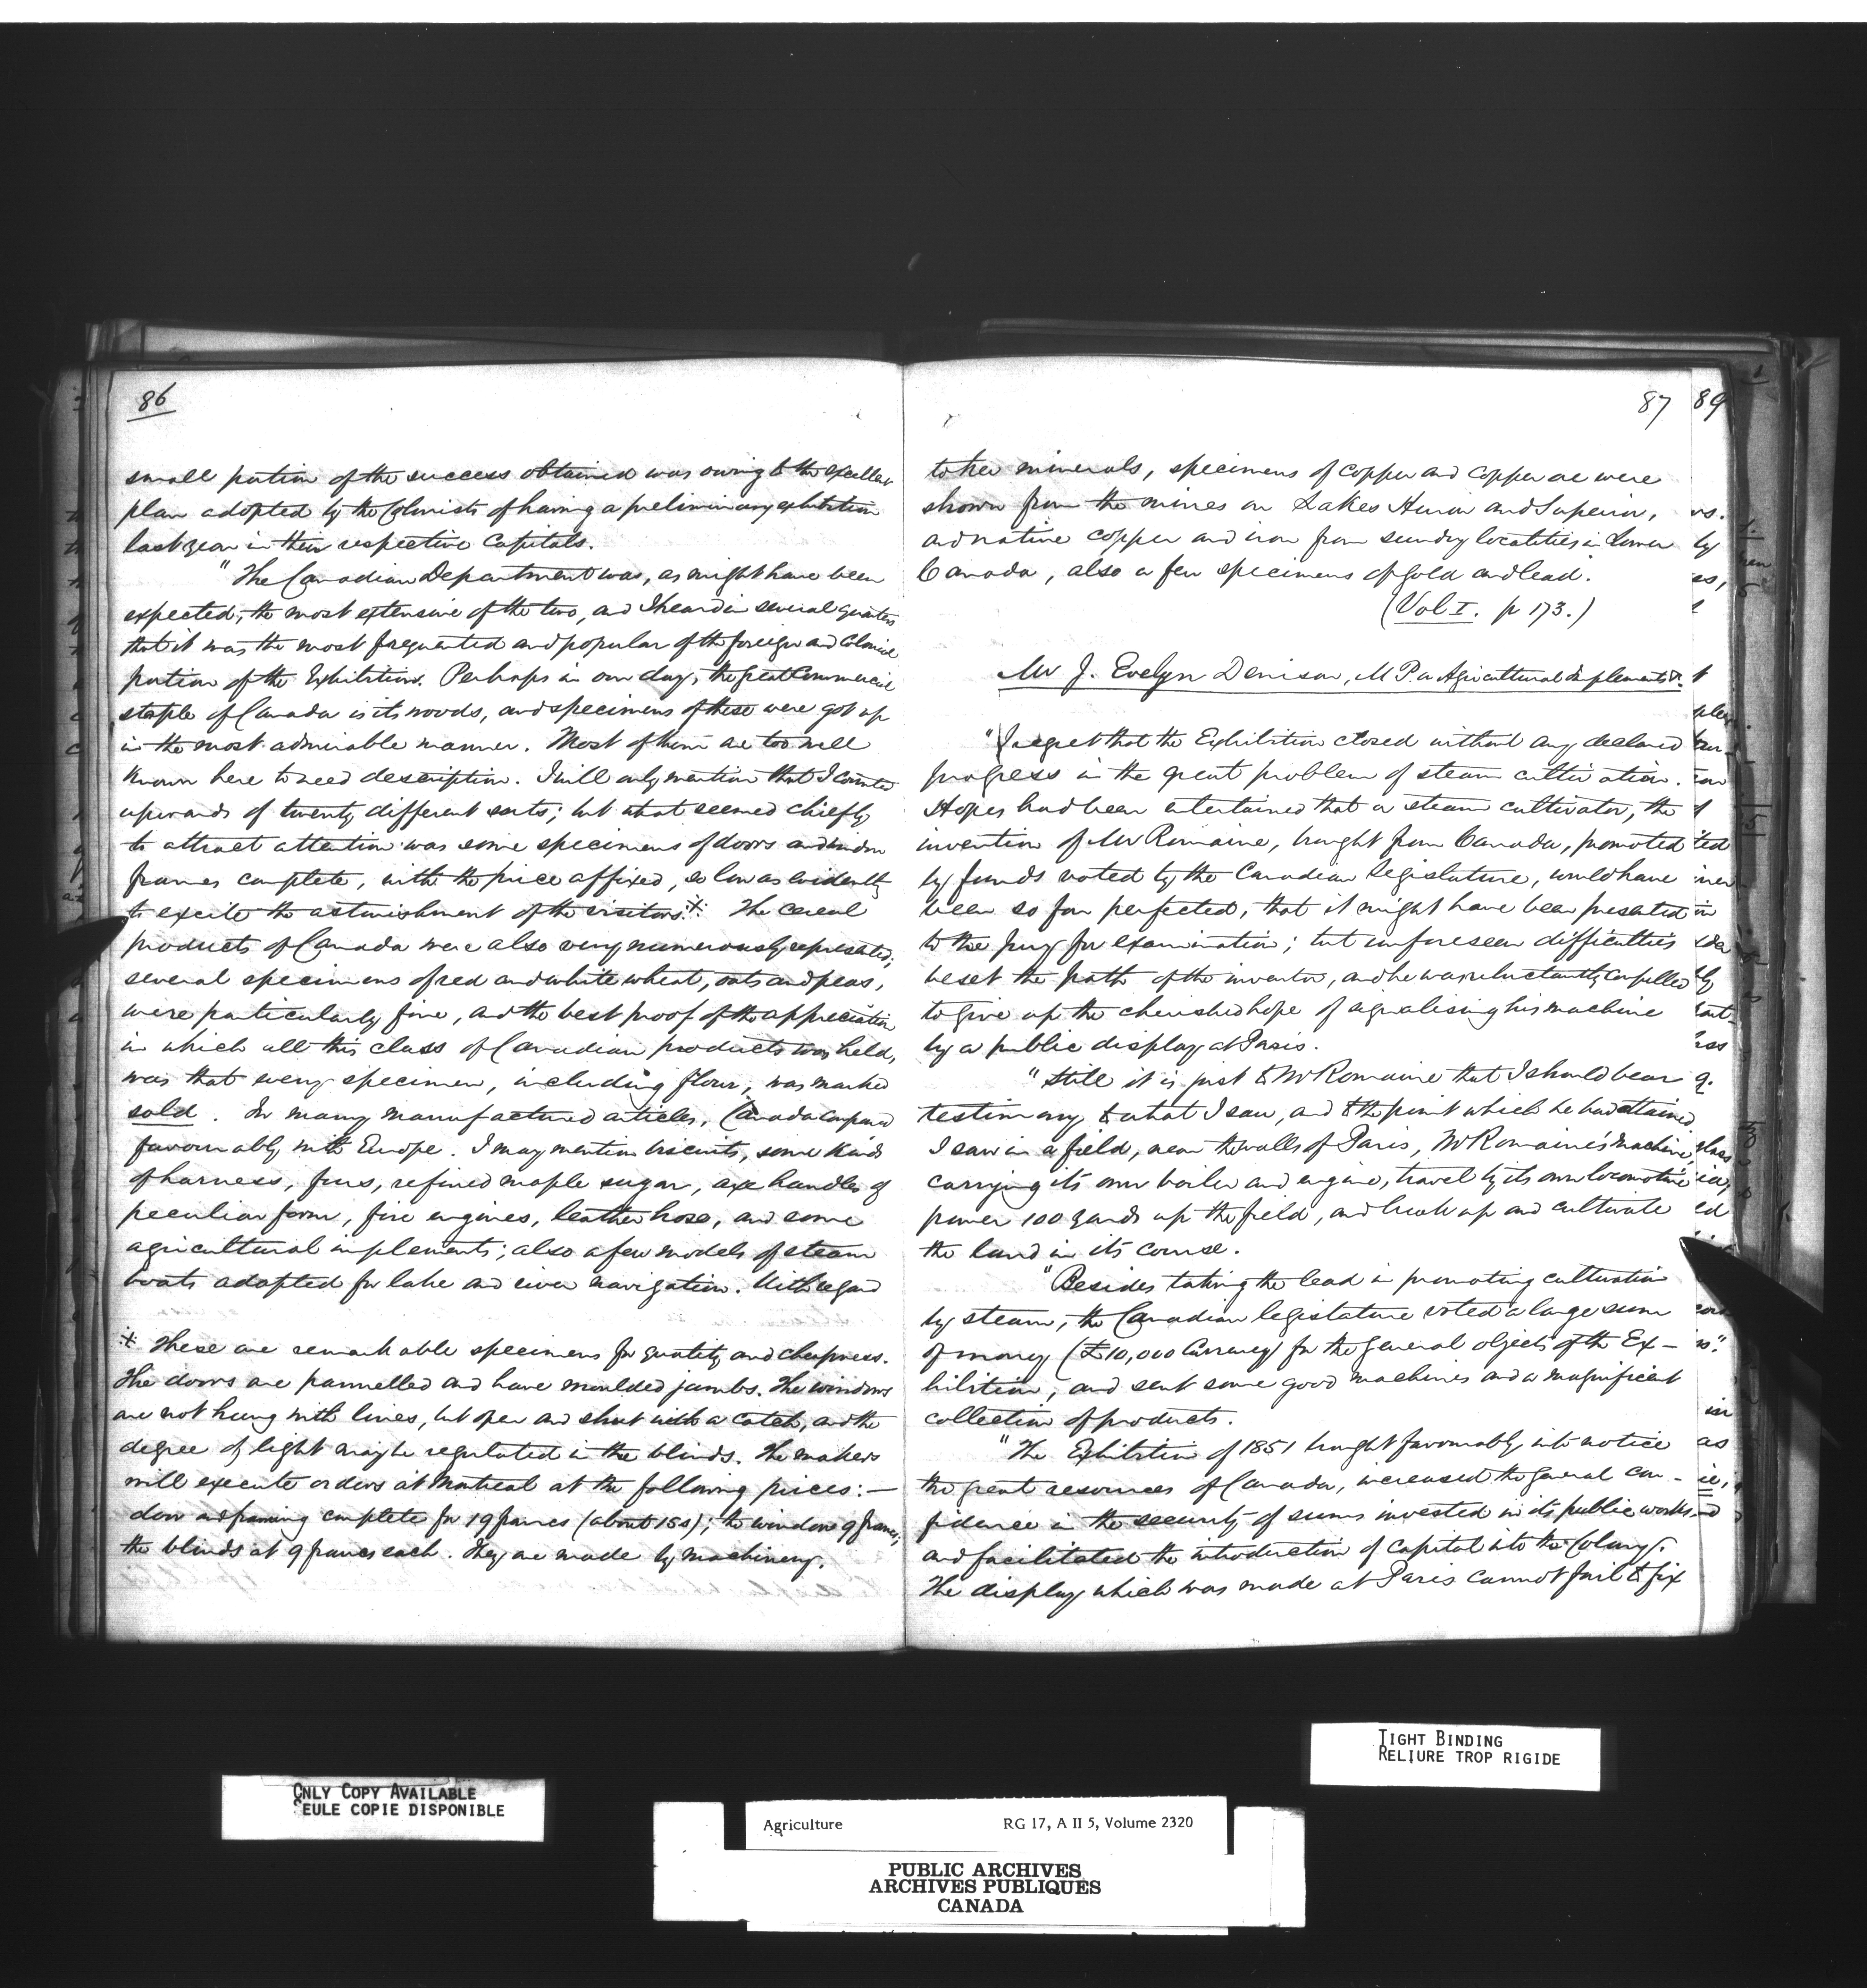 86
small portion of the success obtained was owing to the excellent
plan adopted by the Colonists of having a preliminary exhibition
last year in their respective Capitals.
"The Canadian Department was, as might have been
expected, the most extensive of the two, and I heard in several quarters
that it was the most frequented and popular of the foreign and Colonial
portion of the Exhibition. Perhaps in our day, the great Commercial
staple of Canada is its woods, and specimens of these were got up
in the most admirable manner. Most of them are too well
known here to need description. I will only mention that I counted
upwards of twenty different sorts; but what seemed chiefly
to attract attention was some specimens of doors and window
frames complete, with the price affixed, so low as evidently
to excite the astonishment of the visitors.* The cereal
products of Canada were also very numerously represented;
several specimens of red and white wheat, oats and peas,
were particularly fine, and the best proof of the appreciation
in which all this class of Canadian products was held,
was that every specimen, including flour, was marked
sold. In many manufactured articles, Canada compared
favourably with Europe. I may mention biscuits, some kinds
of harness, furs, refined maple sugar, axe handles of
peculiar form, fire engines, leather hose, and some
agricultural implements; also a few models of steam
boats adapted for lake and river navigation. With regard
* These are remarkable specimens for quality and cheapness.
The doors are pannelled and have moulded jambs. The windows
are not hung with lines, but open and shut with a catch, and the
degree of light may be regulated in the blinds. The makers
will execute orders at Montreal at the following prices:—
door and framing complete for 19 francs (about 15s); the window 9 francs;
the blinds at 9 francs each. They are made by machinery.
87
to her minerals, specimens of copper and copper ore were
shown from the mines on Lakes Huron and Superior,
and native copper and iron from sundry localities in Lower
Canada, also a few specimens of gold and lead.
(Vol I. p 173.)
Mr J. Evelyn Denison, M P. on Agricultural Implements &c.
"I regret that the Exhibition closed without any declared
progress in the great problem of steam cultivation.
Hopes had been entertained that a steam cultivator, the
invention of Mr Romaine, brought from Canada, promoted
by funds voted by the Canadian legislature, would have
been so far perfected, that it might have been presented
to the jury for examination; but unforeseen difficulties
beset the path of the inventor, and he was reluctantly compelled
to give up the cherished hope of signalising his machine
by a public display at Paris.
"Still it is just to Mr Romaine that I should bear
testimony to what I saw, and to the point which he had attained
I saw in a field, near the walls of Paris, Mr Romaine's machine,
carrying its own boiler and engine, travel by its own locomotive
power 100 yards up the field, and break up and cultivate
the land in its course.
"Besides taking the lead in promoting cultivation
by steam, the Canadian legislature voted a large sum
of money (£10,000 Currency) for the general objects of the Ex-
hibition, and sent some good machines and a magnificent
collection of products.
"The Exhibition of 1851 brought favourably into notice
the great resources of Canada, increased the general con-
fidence in the security of sums invested in its public works
and facilitated the introduction of capital into the Colony.
The display which was made at Paris cannot fail to fix
89
ONLY COPY AVAILABLE
SEULE COPIE DISPONIBLE
TIGHT BINDING
RELIURE TROP RIGIDE
Agriculture RG 17, A II 5, Volume 2320
PUBLIC ARCHIVES
ARCHIVES PUBLIQUES
CANADA